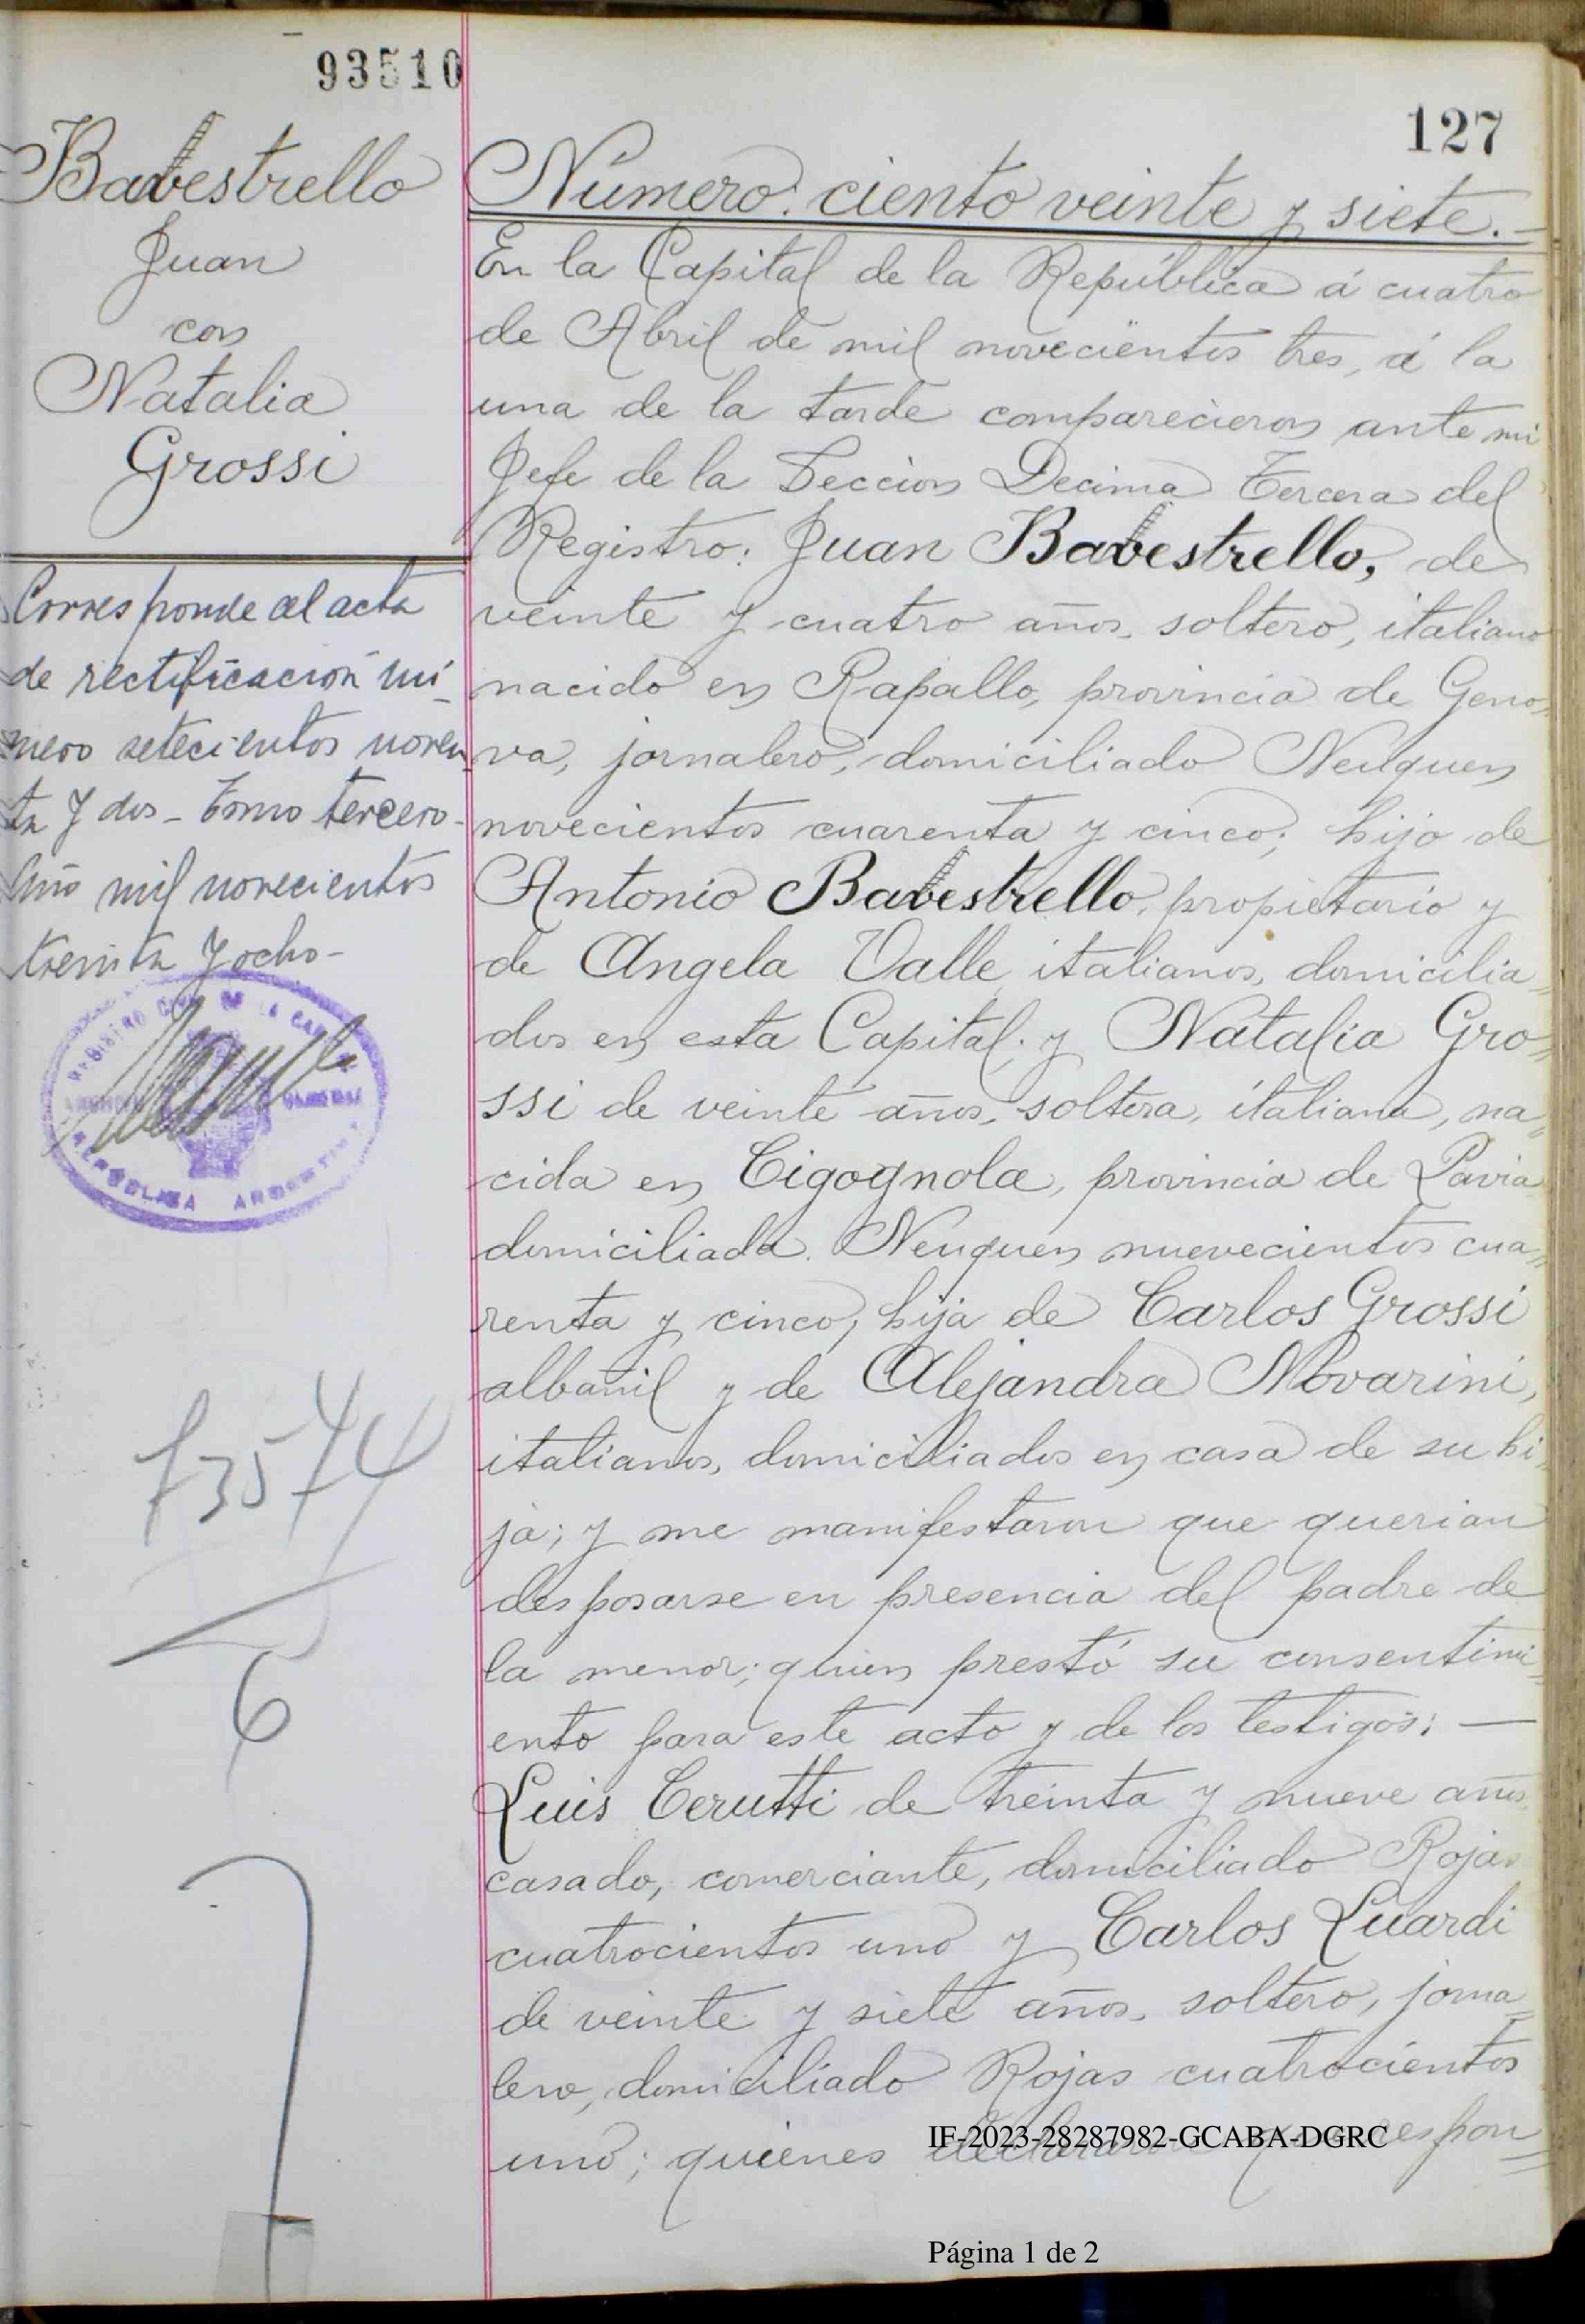 93510
127
Babestrello
Juan
con
Natalia
Grossi
Corresponde al acta
de rectificación nú-
mero setecientos noven
ta y dos - Tomo tercero -
Año mil novecientos
treinta y ocho -
REGISTRO CIVIL DE LA CAPITAL
REPÚBLICA ARGENTINA
73574
6
Número: ciento veinte y siete.-
En la Capital de la República á cuatro
de Abril de mil novecientos tres, á la
una de la tarde comparecieron ante mi
Jefe de la Seccion Decima Tercera del
Registro: Juan Babestrello, de
veinte y cuatro años, soltero, italiano
nacido en Rapallo, provincia de Geno-
va, jornalero, domiciliado Neuquen
novecientos cuarenta y cinco; hijo de
Antonio Babestrello, propietario y
de Angela Valle, italianos, domicilia-
dos en esta Capital; y Natalia Gro-
ssi de veinte años, soltera, italiana, na-
cida en Cigognola, provincia de Pavia
domiciliada Neuquen nuevecientos cua-
renta y cinco, hija de Carlos Grossi
albañil y de Alejandra Novarini,
italianos, domiciliados en casa de su hi-
ja; y me manifestaron que querian
desposarse en presencia del padre de
la menor; quien prestó su consentimi-
ento para este acto y de los testigos: —
Luis Cerutti de treinta y nueve años
casado, comerciante, domiciliado Rojas
cuatrocientos uno y Carlos Luardi
de veinte y siete años, soltero, jorna-
lero, domiciliado Rojas cuatrocientos
uno; quienes declararon que respon-
IF-2023-28287982-GCABA-DGRC
Página 1 de 2